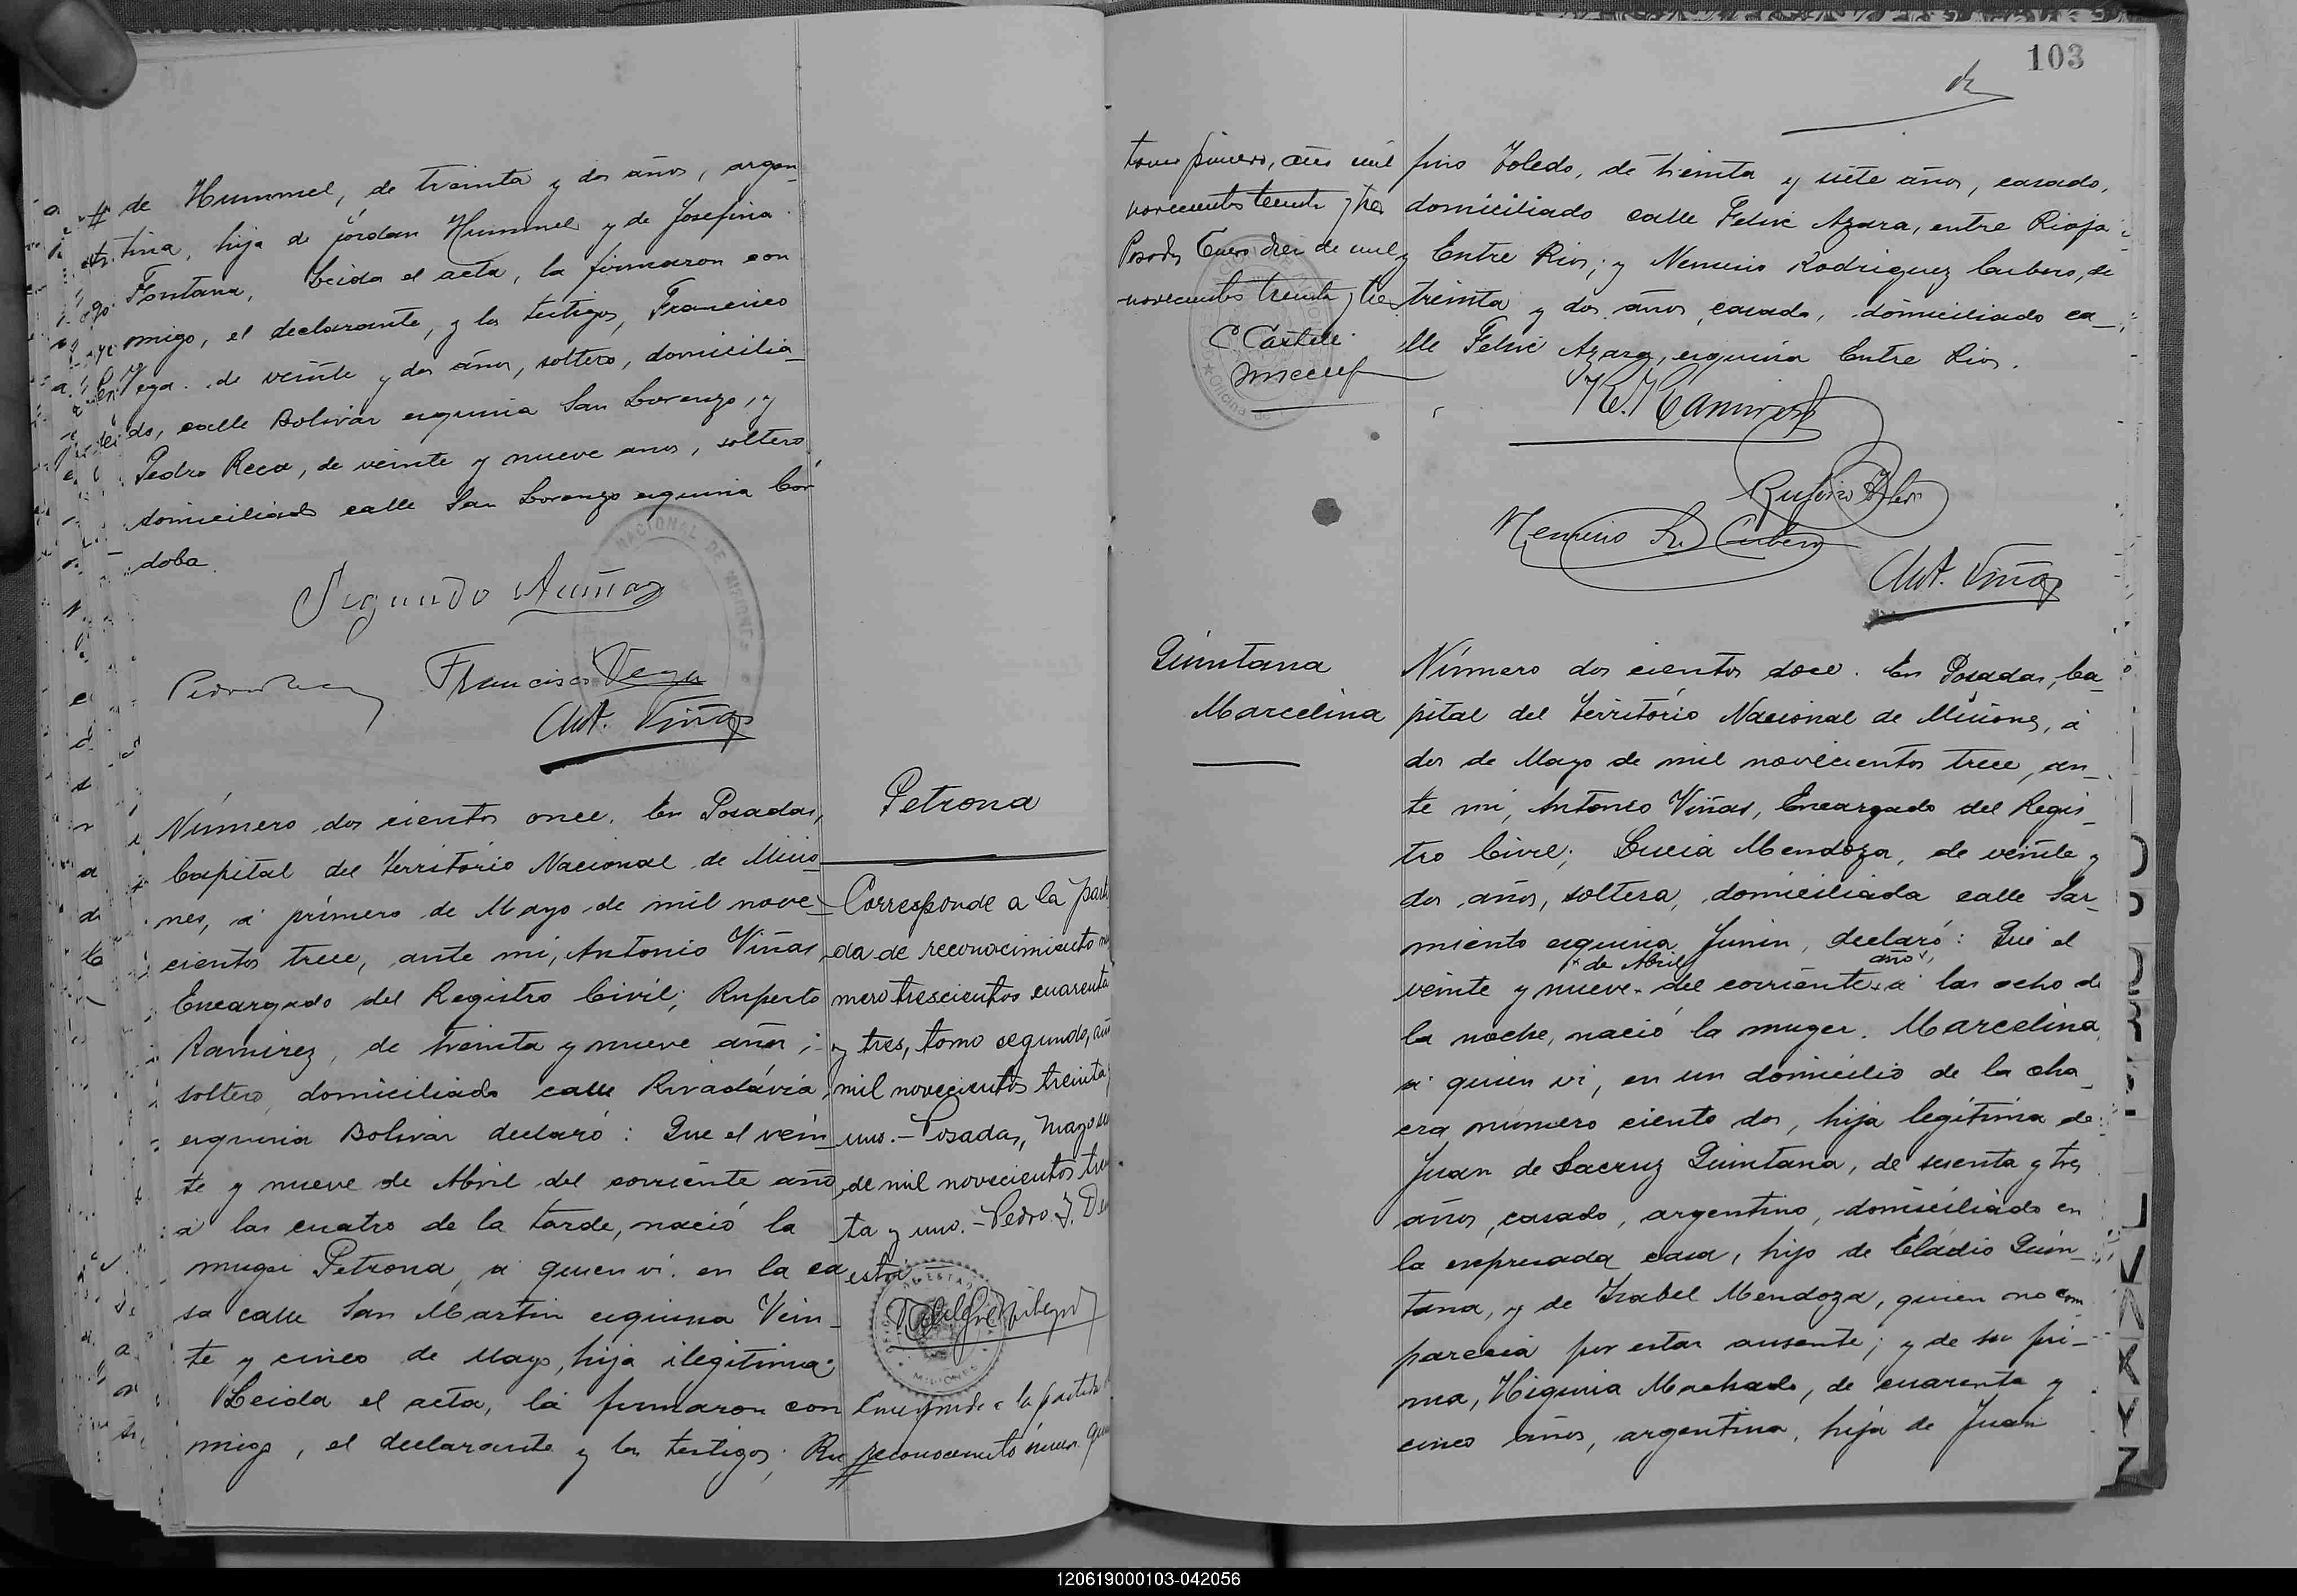 de Hummel, de treinta y dos años, argen-
tina, hija de Jordan Hummel y de Josefina
Fontana, Leida el acta, la firmaron con
migo, el declarante, y los testigos, Francisco
Vega de veinte y dos años, soltero, domicilia-
do, calle Bolivar esquina San Lorenzo, y
Pedro Reca, de veinte y nueve anos, soltero
domiciliado calle San Lorenzo esquina Cór
doba.
Segundo Acuña
Francisco Vega
Ant. Viñas
Número dos cientos once. En Posadas,
Capital del Territorio Nacional de Misio-
nes, á primero de Mayo de mil nove-
cientos trece, ante mi, Antonio Viñas
Encargado del Registro Civil; Ruperto
Ramirez, de treinta y nueve años,
soltero, domiciliado calle Rivadávia
esquina Bolivar declaró: Que el vein-
te y nueve de Abril del corriente año
á las cuatro de la tarde, nació la
muger Petrona, á quien vi. en la ca
sa calle San Martin esquina Vein-
te y cinco de Mayo, hija ilegitima:
Leida el acta, la firmaron con
migo, el declarante y los testigos, Ru
Petrona
Corresponde a la parti
da de reconocimiento nú
mero trescientos cuarenta
y tres, tomo segundo, año
mil novecientos treinta y
uno.- Posadas, Mayo
de mil novecientos trein
ta y uno. - Pedro J.
Corresponde a la partida
reconocimiento número
103
tomo primero, año mil
novecientos treinta y tres
Posadas Enero diez de mil
novecientos treinta y tres
fino Toledo, de treinta y siete años, casado,
domiciliado calle Felix Azara, entre Rioja
y Entre Rios; y Nemesio Rodriguez Cubero, de
treinta y dos años, casado, domiciliado ca-
lle Felix Azara, esquina Entre Rios.
R. Ramirez
Rufino Toledo
Nemesio R. Cubero
Ant. Viñas
Quintana
Marcelina
Número dos cientos doce. En Posadas, Ca-
pital del Territorio Nacional de Misiones, á
dos de Mayo de mil novecientos trece, an-
te mi, Antonio Viñas, Encargado del Regis-
tro Civil; Lucia Mendoza, de veinte y
dos años, soltera, domiciliada calle Sar-
miento esquina Junin, declaró: Que el
de Abril año
veinte y nueve del corriente á las ocho de
la noche, nació la muger Marcelina
á quien vi, en un domicilio de la cha-
cra número ciento dos, hija legitima de
Juan de Lacruz Quintana, de sesenta y tres
años, casado, argentino, domiciliado en
la expresada casa, hijo de Eládio Quin-
tana, y de Isabel Mendoza, quien no com
parecia por estar ausente; y de su pri-
ma, Higinia Machado, de cuarenta y
cinco años, argentina, hija de Juan
120619000103-042056